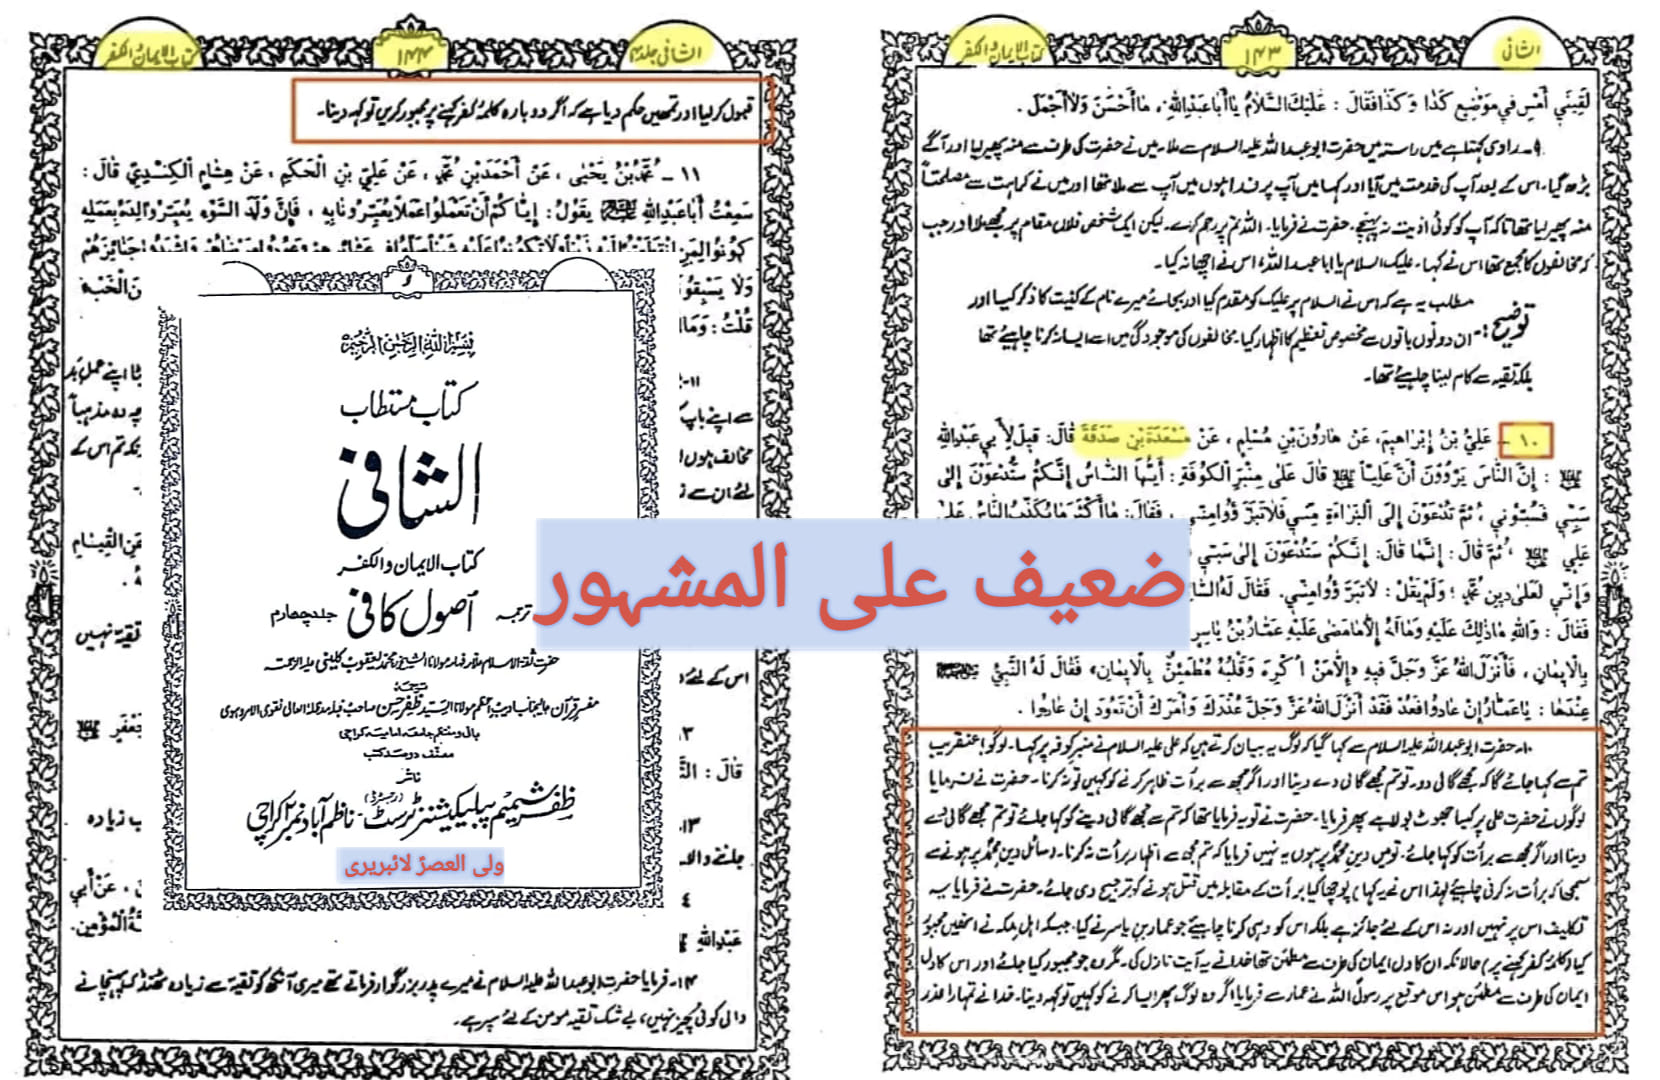 الشافی
۱۴۳
کتاب الایمان والکفر
لَقِيَنِي أَمْسِ فِي مَوْضِعِ كَذَا وَ كَذَا فَقَالَ : عَلَيْكَ السَّلَامُ يَا أَبَا عَبْدِاللهِ ، مَا أَحْسَنَ وَلَا أَجْمَلَ .
۹۔ راوی کہتا ہے میں راستہ میں حضرت ابو عبد اللہ علیہ السلام سے ملا۔ میں نے حضرت کی طرف سے منہ پھیر لیا اور آگے
بڑھ گیا۔ اس کے بعد آپ کی خدمت میں آیا اور کہا میں آپ پر فدا ہوں میں آپ سے ملا تھا اور میں نے کراہت سے مصلحتاً
منہ پھیر لیا تھا تاکہ آپ کو کوئی اذیت نہ پہنچے۔ حضرت نے فرمایا۔ اللہ تم پر رحم کرے۔ لیکن ایک شخص فلاں مقام پر مجھے ملا اور جب
کہ مخالفوں کا مجمع تھا اس نے کہا۔ علیک السلام یا ابا عبد اللہ، اس نے اچھا نہ کیا۔
مطلب یہ ہے کہ اس نے السلام پر علیک کو مقدم کیا اور بجائے میرے نام کے کنیت کا ذکر کیا اور
توضیح :۔ ان دونوں باتوں سے مخصوص تعظیم کا اظہار کیا۔ مخالفوں کی موجودگی میں اسے ایسا نہ کرنا چاہیئے تھا
بلکہ تقیہ سے کام لینا چاہیئے تھا۔
١٠ ـ عَلِيُّ بْنُ إِبْرَاهِيمَ، عَنْ هَارُونَ بْنِ مُسْلِمٍ ، عَنْ مَسْعَدَةَ بْنِ صَدَقَةَ قَالَ: قِيلَ لِأَبِي عَبْدِاللهِ
: إِنَّ النَّاسَ يَرْوُونَ أَنَّ عَلِيّاً قَالَ عَلَى مِنْبَرِ الْكُوفَةِ : أَيُّهَا النَّاسُ إِنَّكُمْ سَتُدْعَوْنَ إِلَى
سَبِّي فَسُبُّونِي ، ثُمَّ تُدْعَوْنَ إِلَى الْبَرَاءَةِ مِنِّي فَلَا تَبَرَّؤُوا مِنِّي ، فَقَالَ: مَا أَكْثَرَ مَا يَكْذِبُ النَّاسُ عَلَى
عَلِيٍّ ، ثُمَّ قَالَ : إِنَّمَا قَالَ: إِنَّكُمْ سَتُدْعَوْنَ إِلَى سَبِّي
وَإِنِّي لَعَلَى دِينِ مُحَمَّدٍ ؛ وَلَمْ يَقُلْ : لَا تَبَرَّؤُوا مِنِّي. فَقَالَ لَهُ
فَقَالَ : وَاللهِ مَا ذَلِكَ عَلَيْهِ وَمَا لَهُ إِلَّا مَا مَضَى عَلَيْهِ عَمَّارُ بْنُ يَاسِرٍ
بِالْإِيمَانِ ، فَأَنْزَلَ اللهُ عَزَّ وَجَلَّ فِيهِ «إِلَّا مَنْ أُكْرِهَ وَقَلْبُهُ مُطْمَئِنٌّ بِالْإِيمَانِ» فَقَالَ لَهُ النَّبِيُّ
عِنْدَهَا : يَا عَمَّارُ إِنْ عَادُوا فَعُدْ فَقَدْ أَنْزَلَ اللهُ عَزَّ وَجَلَّ عُذْرَكَ وَأَمَرَكَ أَنْ تَعُودَ إِنْ عَادُوا .
۱۰۔ حضرت ابو عبد اللہ علیہ السلام سے کہا گیا کہ لوگ یہ بیان کرتے ہیں کہ علی علیہ السلام نے منبر کوفہ پر کہا۔ لوگو! عنقریب
تم سے کہا جائے گا کہ مجھے گالی دو۔ تو تم مجھے گالی دے دینا اور اگر مجھ سے برأت ظاہر کرنے کو کہیں تو نہ کرنا۔ حضرت نے فرمایا
لوگوں نے حضرت علی پر کیسا جھوٹ بولا ہے پھر فرمایا۔ حضرت نے تو یہ فرمایا تھا کہ تم سے مجھے گالی دینے کو کہا جائے تو تم مجھے گالی دے
دینا اور اگر مجھ سے برأت کو کہا جائے۔ تو میں دین محمد پر ہوں یہ نہیں فرمایا کہ تم مجھ سے اظہار برأت نہ کرنا۔ (سائل دین محمد پر ہونے سے
سمجھا کہ برأت نہ کرنی چاہیئے لہذا اس نے یہ کہا) پوچھا کیا برأت کے مقابلہ میں قتل ہونے کو ترجیح دی جائے۔ حضرت نے فرمایا یہ
تکلیف اس پر نہیں اور نہ اس کے لئے جائز ہے بلکہ اس کو وہی کرنا چاہیئے جو عمار بن یاسر نے کیا۔ جبکہ اہل مکہ نے انھیں مجبور
کیا (کلمۂ کفر کہنے پر) حالانکہ ان کا دل ایمان کی طرف سے مطمئن تھا خدا نے یہ آیت نازل کی۔ مگر وہ جو مجبور کیا جائے اور اس کا دل
ایمان کی طرف سے مطمئن ہو اس موقع پر رسول اللہ نے عمار سے فرمایا اگر وہ لوگ پھر ایسا کرنے کو کہیں تو کہہ دینا۔ خدا نے تمہارا عذر
الشافی جلد۴
۱۴۴
کتاب الایمان والکفر
قبول کر لیا اور تمھیں حکم دیا ہے کہ اگر دوبارہ کلمۂ کفر کہنے پر مجبور کریں تو کہہ دینا۔
١١ ـ مُحَمَّدُ بْنُ يَحْيَى ، عَنْ أَحْمَدَ بْنِ مُحَمَّدٍ ، عَنْ عَلِيِّ بْنِ الْحَكَمِ ، عَنْ هِشَامٍ الْكِنْدِيِّ قَالَ :
سَمِعْتُ أَبَا عَبْدِاللهِ يَقُولُ : إِيَّاكُمْ أَنْ تَعْمَلُوا عَمَلاً يُعَيِّرُونَا بِهِ ، فَإِنَّ وَلَدَ السَّوْءِ يُعَيَّرُ وَالِدُهُ بِعَمَلِهِ
وَلَا يَسْبِقُو
قُلْتُ : وَمَا
۱۱۔
سے اپنے باپ
مخالف ہوں
لئے ان سے
ٹا اپنے عمل بد
چہ وہ مذہباً
نکہ تم اس کے
عَنِ الْقِيَامِ
تقیہ نہیں
اس کے لئے
قَالَ :
۱۳۔
جلنے والا
ب زیادہ
٤
عَبْدِاللهِ
، عَنْ أَبِي
۱۴۔ فرمایا حضرت ابو عبد اللہ علیہ السلام نے میرے پدر بزرگوار فرماتے تھے میری آنکھ کو تقیہ سے زیادہ ٹھنڈک پہنچانے
والی کوئی چیز نہیں، بے شک تقیہ مومن کے لئے سپر ہے۔
بسم الله الرحمن الرحيم
کتاب مستطاب
الشافی
کتاب الایمان والکفر
ترجمہ اصول کافی جلد چہارم
حضرت ثقة الاسلام علامہ فہامہ مولانا الشیخ محمد یعقوب کلینی علیہ الرحمہ
مفسر قرآن عالیجناب ادیب اعظم مولانا السید ظفر حسن صاحب قبلہ مدظلہ العالی نقوی الامروہوی
بانی و منتظم جامعہ امامیہ کراچی
مصنف دو صد کتب
ناشر
ظفر شمیم پبلیکیشنز ٹرسٹ (رجسٹرڈ) ناظم آباد نمبر ۲ کراچی
ولی العصرؑ لائبریری
ضعیف علی المشہور